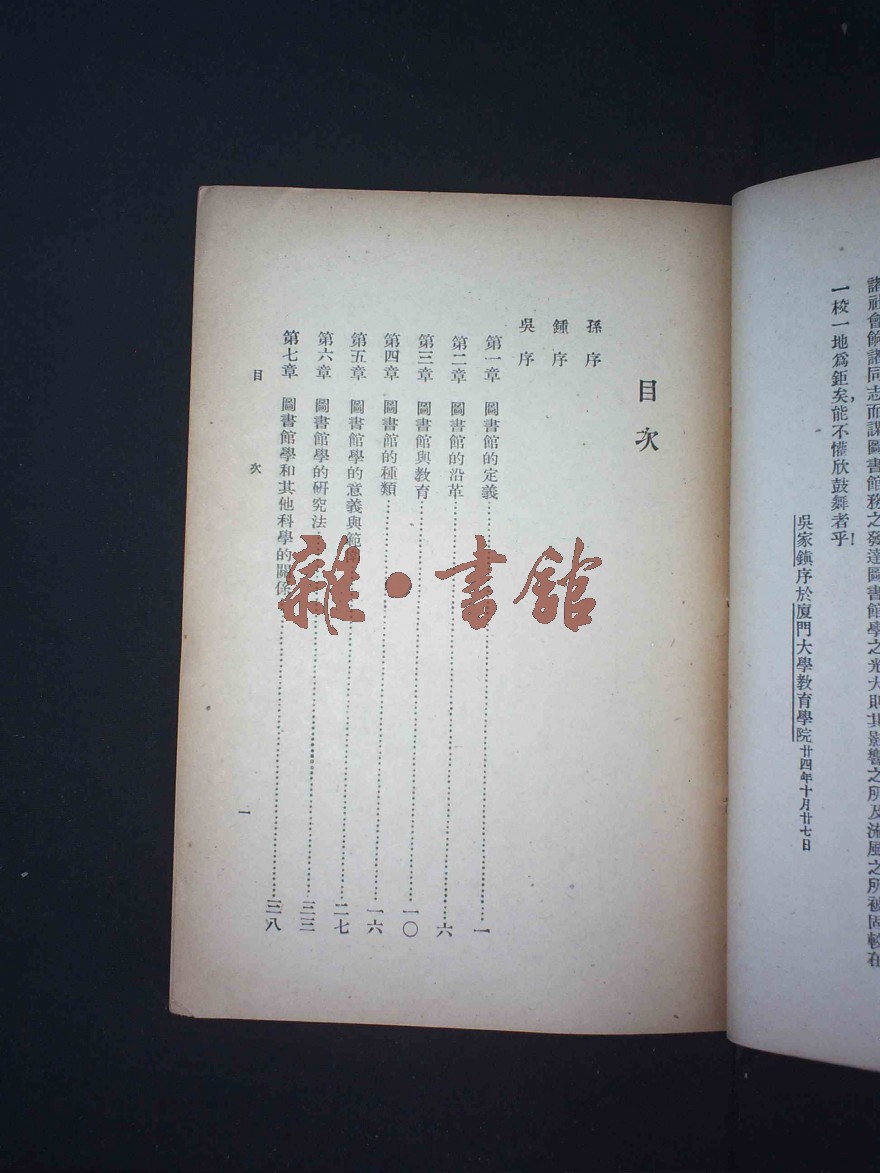 諸社會餉諸同志而謀圖書館務之發達圖書館學之光大則其影響之所及流風之所被固較在
一校一地爲鉅矣,能不懽欣鼓舞者乎!
吳家鎭序於厦門大學教育學院廿四年十月廿七日
目次
孫序
鍾序
吳序
第一章 圖書館的定義……一
第二章 圖書館的沿革……六
第三章 圖書館與教育……一〇
第四章 圖書館的種類……一六
第五章 圖書館學的意義與範圍……二七
第六章 圖書館學的研究法……三三
第七章 圖書館學和其他科學的關係……三八
目次
一
雜·書館